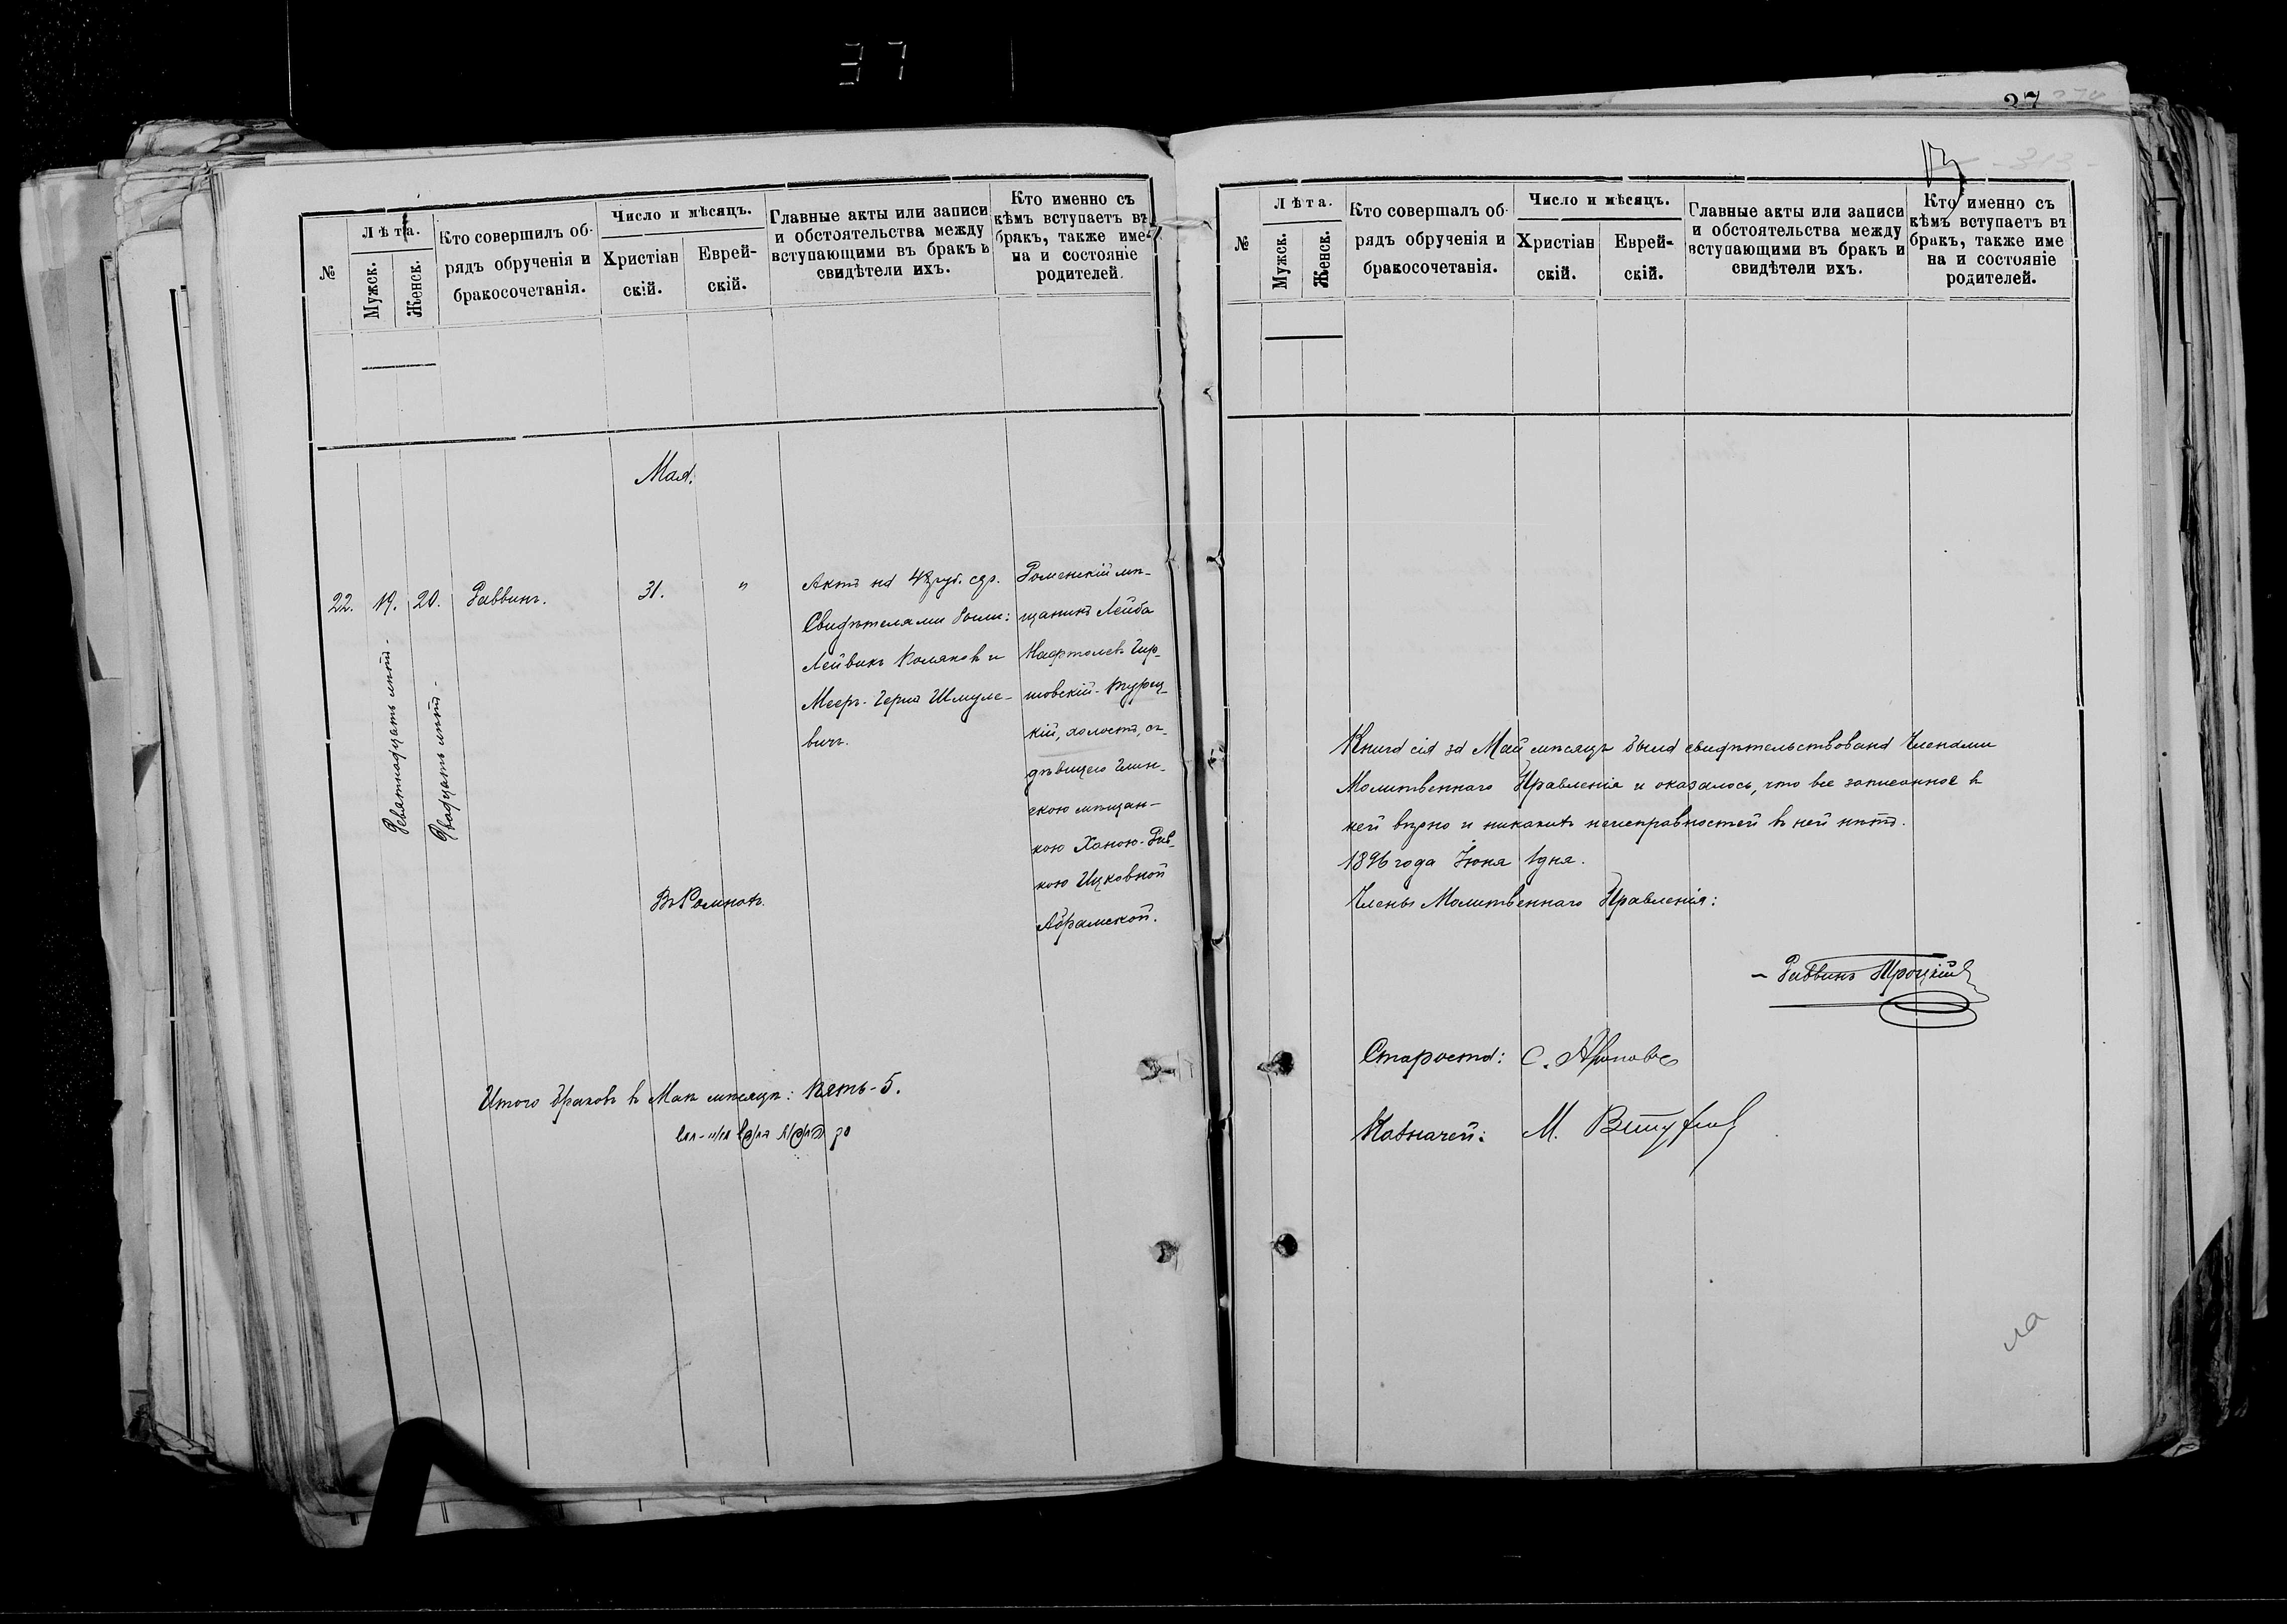 37
№
Лѣта.
Мужск.
Женск.
Кто совершилъ об-
рядъ обрученія и
бракосочетанія.
Число и мѣсяцъ.
Христіан
скій.
Еврей-
скій.
Главные акты или записи
и обстоятельства между
вступающими въ бракъ и
свидѣтели ихъ.
Кто именно съ
кѣмъ вступаетъ въ
бракъ, также име-
на и состояніе
родителей.
Мая.
22. 19. 20. Раввинъ. 31. "
Девятнадцать лѣтъ -
Двадцать лѣтъ -
Актъ на руб. сер.
Свидѣтелями были:
Лейвикъ и
Мееръ-Герцъ Шмуле-
вичъ.
Роменскій мѣ-
щанинъ Лейба
Нафтолевъ Гир-
шовскій-Турец-
кій, холостъ, съ
дѣвицею Глин-
скою мѣщан-
кою Ханою-Рив-
кою Ицковной
Абрамской.
Въ Ромнахъ.
Итого браковъ въ Маѣ мѣсяцѣ: пять-5.
37
313
№
Лѣта.
Мужск.
Женск.
Кто совершалъ об-
рядъ обрученія и
бракосочетанія.
Число и мѣсяцъ.
Христіан
скій.
Еврей-
скій.
Главные акты или записи
и обстоятельства между
вступающими въ бракъ и
свидѣтели ихъ.
Кто именно съ
кѣмъ вступаетъ въ
бракъ, также име
на и состояніе
родителей.
Книга сія за Май мѣсяцъ была свидѣтельствована Членами
Молитвеннаго Правленія и оказалось, что все записанное въ
ней вѣрно и никакихъ неисправностей въ ней нѣтъ.
1896 года Іюня 1 дня.
Члены Молитвеннаго Правленія:
- Раввинъ
Староста: С.
Казначей: М.